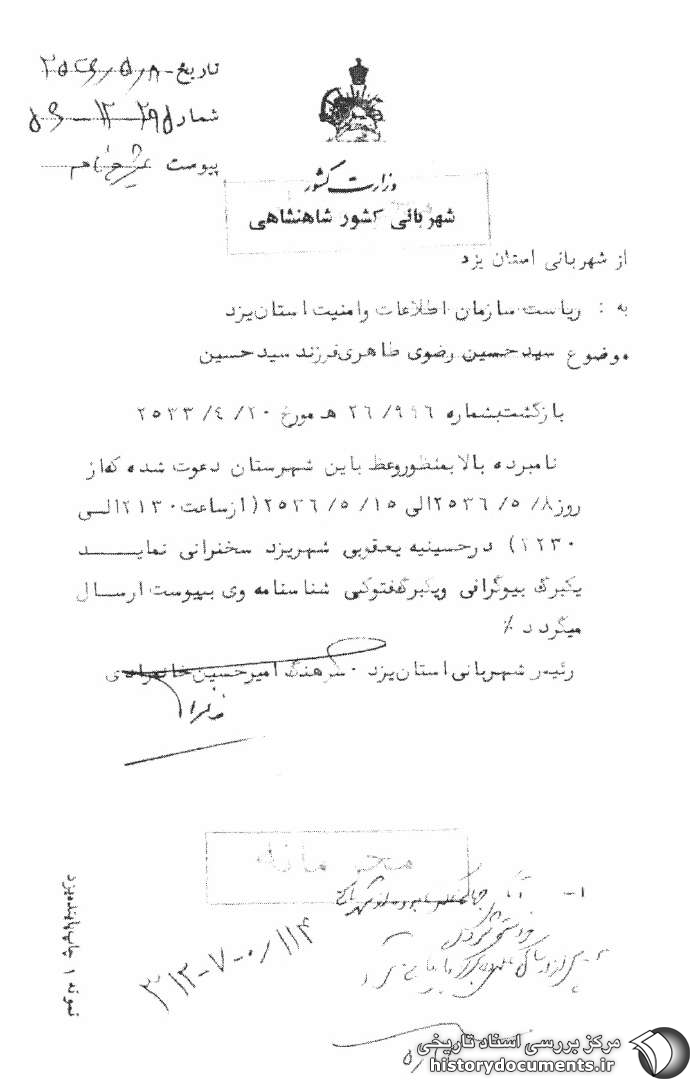 تاریخ ۲۵۳۶/۵/۸
شماره ۵۶-۱۲-۲۹۵
پیوست
وزارت کشور
شهربانی کشور شاهنشاهی
از شهربانی استان یزد
به : ریاست سازمان اطلاعات وامنیت استان یزد
موضوع سیدحسین رضوی طاهری فرزند سیدحسین
بازگشت بشماره ۲۶/۹۹۶ هـ مورخ ۲۰/ ۴/ ۲۵۳۳
نامبرده بالا بمنظور وعظ باین شهرستان دعوت شده که از
روز ۸/ ۵/ ۲۵۳۶ الی ۱۵/ ۵/ ۲۵۳۶ (از ساعت ۲۱۳۰ الی
۲۲۳۰) در حسینیه یعقوبی شهریزد سخنرانی نماید
یکبرگ بیوگرافی ویکبرگ فتوکپی شناسنامه وی بپیوست ارسال
میگردد ٪
رئیس شهربانی استان یزد . سرهنگ امیرحسین
محرمانه
۱-
۲-
۳۱۳-۷-۰/۱۱۴
نمونه ۱ چاپ تابنده یزد
مرکز بررسی اسناد تاریخی
historydocuments.ir